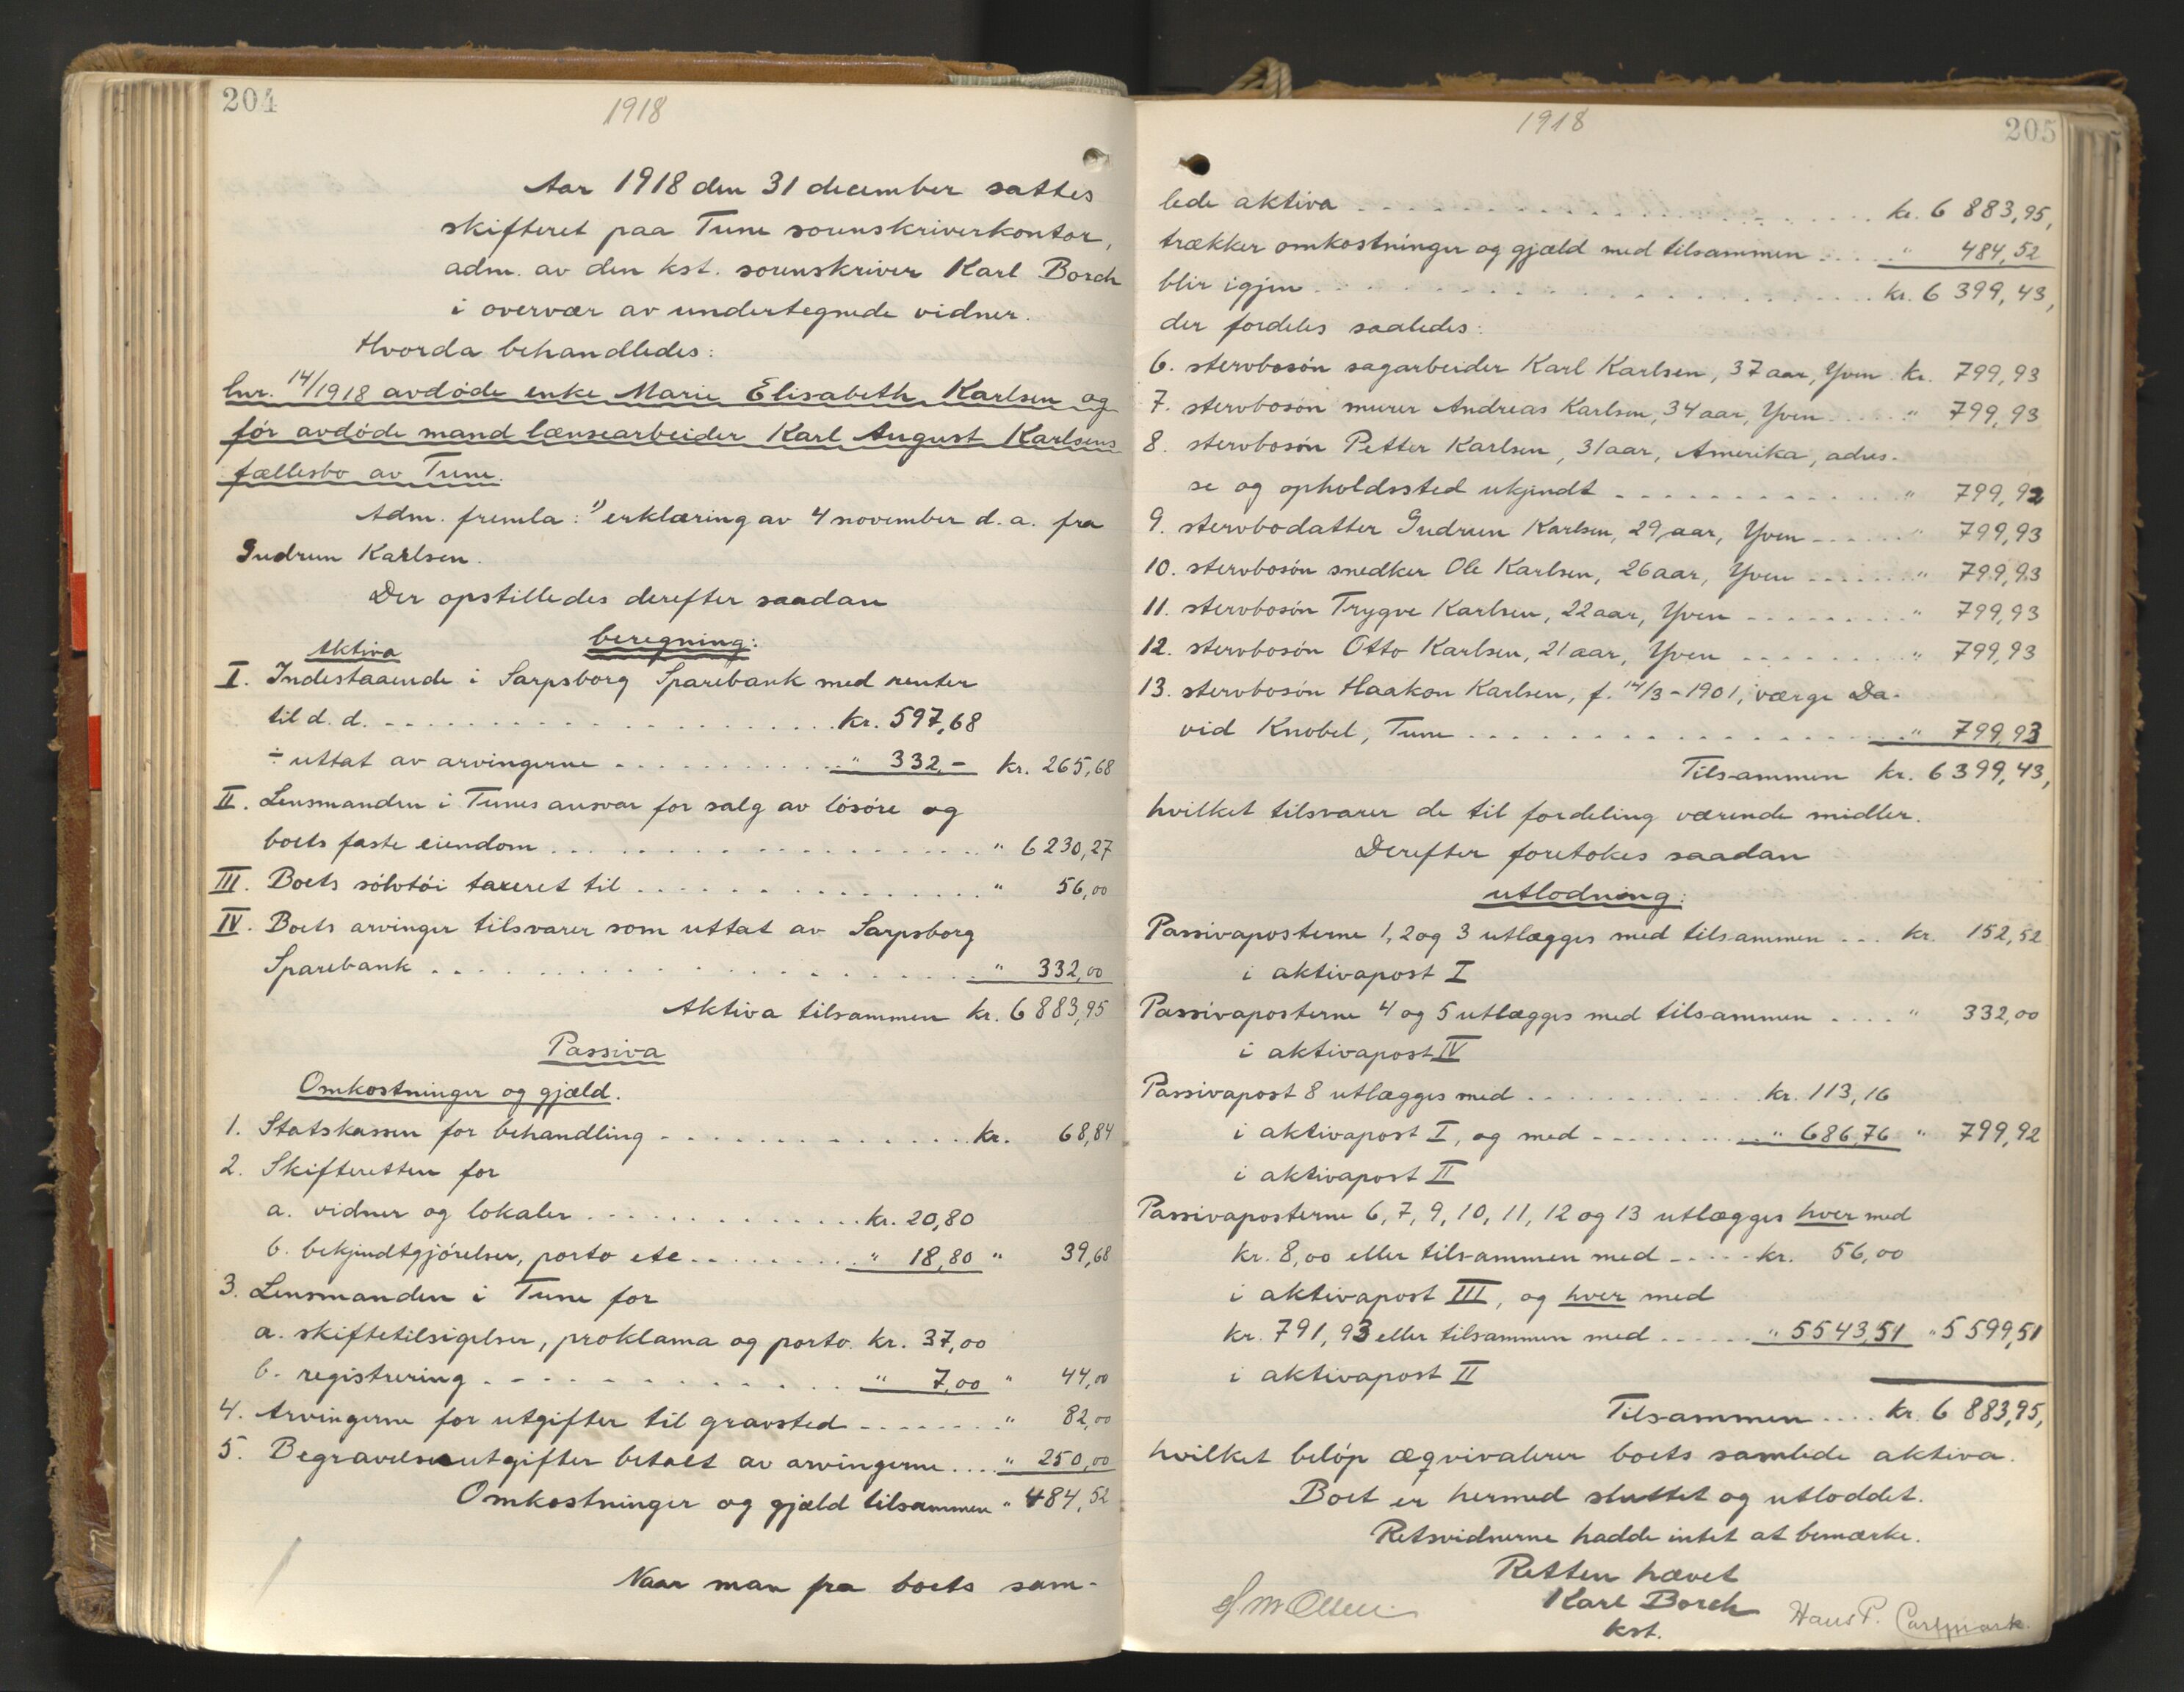 204
1918
Aar 1918 den 31 december sattes
skifteret paa Tune sorenskriverkontor,
adm. av den kst. sorenskriver Karl Borch
i overvær av undertegnede vidner.
Hvorda behandledes:
lnr. 14/1918 avdøde enke Marie Elisabeth Karlsen og
før avdøde mand lænsearbeider Karl August Karlsens
fællesbo av Tune.
Adm. fremla: 1) erklæring av 4 november d. a. fra
Gudrun Karlsen.
Der opstilledes derefter saadan
beregning:
Aktiva
I. Indestaaende i Sarpsborg Sparebank med renter
til d. d. kr. 597,68
÷ uttat av arvingerne " 332,- kr. 265,68
II. Lensmanden i Tunes ansvar for salg av løsøre og
boets faste eiendom " 6230,27
III. Boets sølvtøi taxeret til " 56,00
IV. Boets arvinger tilsvarer som uttat av Sarpsborg
Sparebank " 332,00
Aktiva tilsammen kr. 6883,95
Passiva
Omkostninger og gjæld.
1. Statskassen for behandling kr. 68,84
2. Skifteretten for
a. vidner og lokaler kr. 20,80
b. bekjendtgjørelser, porto etc " 18,80 " 39,68
3. Lensmanden i Tune for
a. skiftetilsigelser, proklama og porto. kr. 37,00
b. registrering " 7,00 " 44,00
4. Arvingerne for utgifter til gravsted " 82,00
5. Begravelsesutgifter betalt av arvingerne " 250,00
Omkostninger og gjæld tilsammen " 484,52
Naar man fra boets sam-
1918
205
lede aktiva kr. 6 883,95,
trækker omkostninger og gjæld med tilsammen " 484,52
blir igjen kr. 6 399,43,
der fordeles saaledes:
6. stervbosøn sagarbeider Karl Karlsen, 37 aar, Yven kr. 799,93
7. stervbosøn murer Andreas Karlsen, 34 aar, Yven " 799,93
8. stervbosøn Petter Karlsen, 31 aar, Amerika, adres-
se og opholdssted ukjendt " 799,92
9. stervbodatter Gudrun Karlsen, 29 aar, Yven " 799,93
10. stervbosøn snedker Ole Karlsen, 26 aar, Yven " 799,93
11. stervbosøn Trygve Karlsen, 22 aar, Yven " 799,93
12. stervbosøn Otto Karlsen, 21 aar, Yven " 799,93
13. stervbosøn Haakon Karlsen, f. 14/3-1901, værge Da-
vid Knobel, Tune " 799,93
Tilsammen kr. 6399,43,
hvilket tilsvarer de til fordeling værende midler.
Derefter foretokes saadan
utlodning:
Passivaposterne 1, 2 og 3 utlægges med tilsammen kr. 152,52
i aktivapost I
Passivaposterne 4 og 5 utlægges med tilsammen " 332,00
i aktivapost IV
Passivapost 8 utlægges med kr. 113,16
i aktivapost I, og med " 686,76 " 799,92
i aktivapost II
Passivaposterne 6, 7, 9, 10, 11, 12 og 13 utlægges hver med
kr. 8,00 eller tilsammen med kr. 56,00
i aktivapost III, og hver med
kr. 791,93 eller tilsammen med " 5543,51 " 5599,51
i aktivapost II
Tilsammen kr. 6 883,95,
hvilket beløp æqvivalerer boets samlede aktiva.
Boet er hermed sluttet og utloddet.
Retsvidnerne hadde intet at bemærke.
Retten hævet
Karl Borch
kst.
Olsen
Hans P. Carlmark.